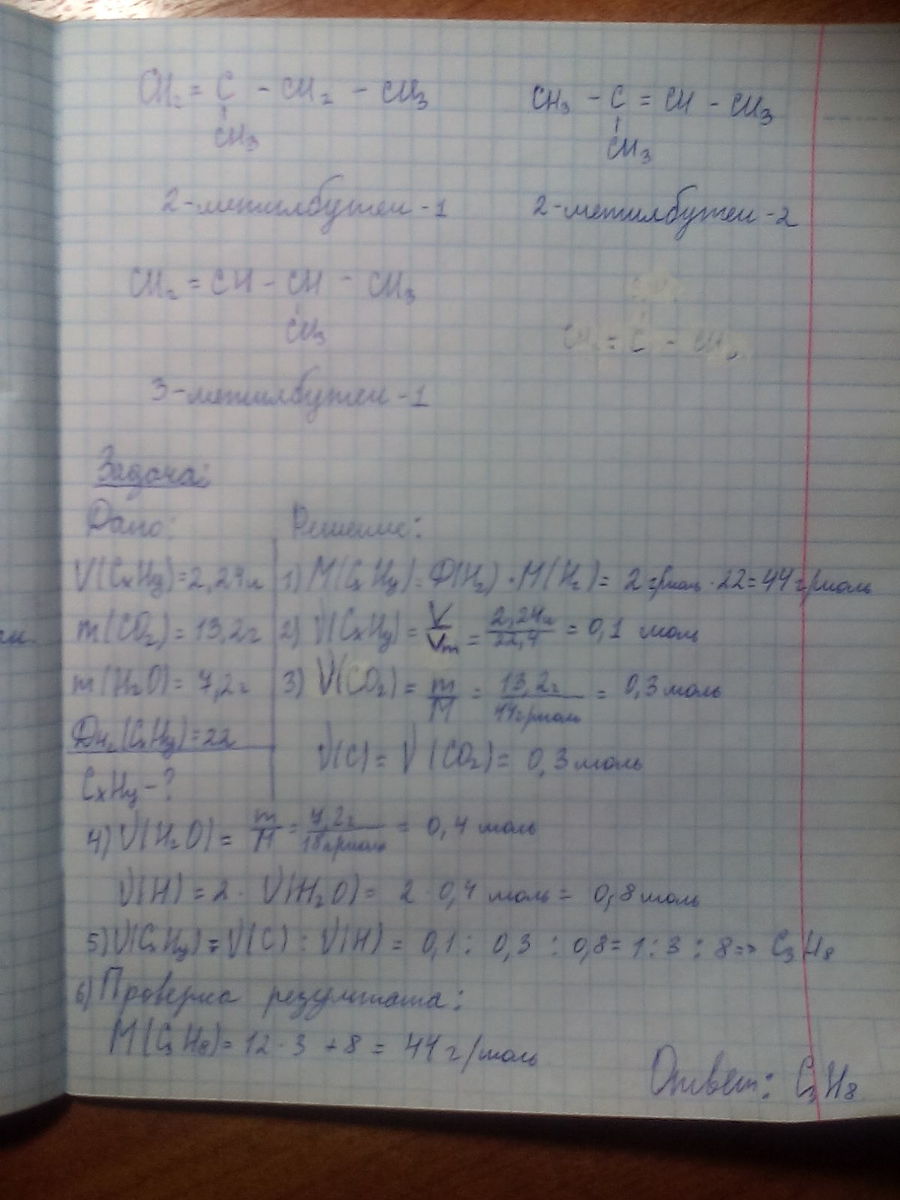 CH₂ = C - CH₂ - CH₃
CH₃
CH₃ - C = CH - CH₃
CH₃
2-метилбутен-1
2-метилбутен-2
CH₂ = CH - CH - CH₃
CH₃
3-метилбутен-1
Задача:
Дано:
V(CxHy)=2,24л
m(CO₂)=13,2г
m(H₂O)=7,2г
Dн₂(CxHy)=22
CxHy-?
Решение:
1) M(CxHy)=Ф(H₂)·M(H₂)= 2г/моль·22=44г/моль
2) ν(CxHy)= V/Vm = 2,24л/22,4 = 0,1 моль
3) ν(CO₂)= m/M = 13,2г/44г/моль = 0,3моль
ν(C)= ν(CO₂)= 0,3моль
4) ν(H₂O)= m/M = 7,2г/18г/моль = 0,4 моль
ν(H)=2· ν(H₂O)= 2·0,4 моль= 0,8моль
5) ν(CxHy):ν(C):ν(H)= 0,1: 0,3 :0,8=1:3:8=> C₃H₈
6) Проверка результата:
M(C₃H₈)= 12·3 +8 = 44г/моль
Ответ: C₃H₈